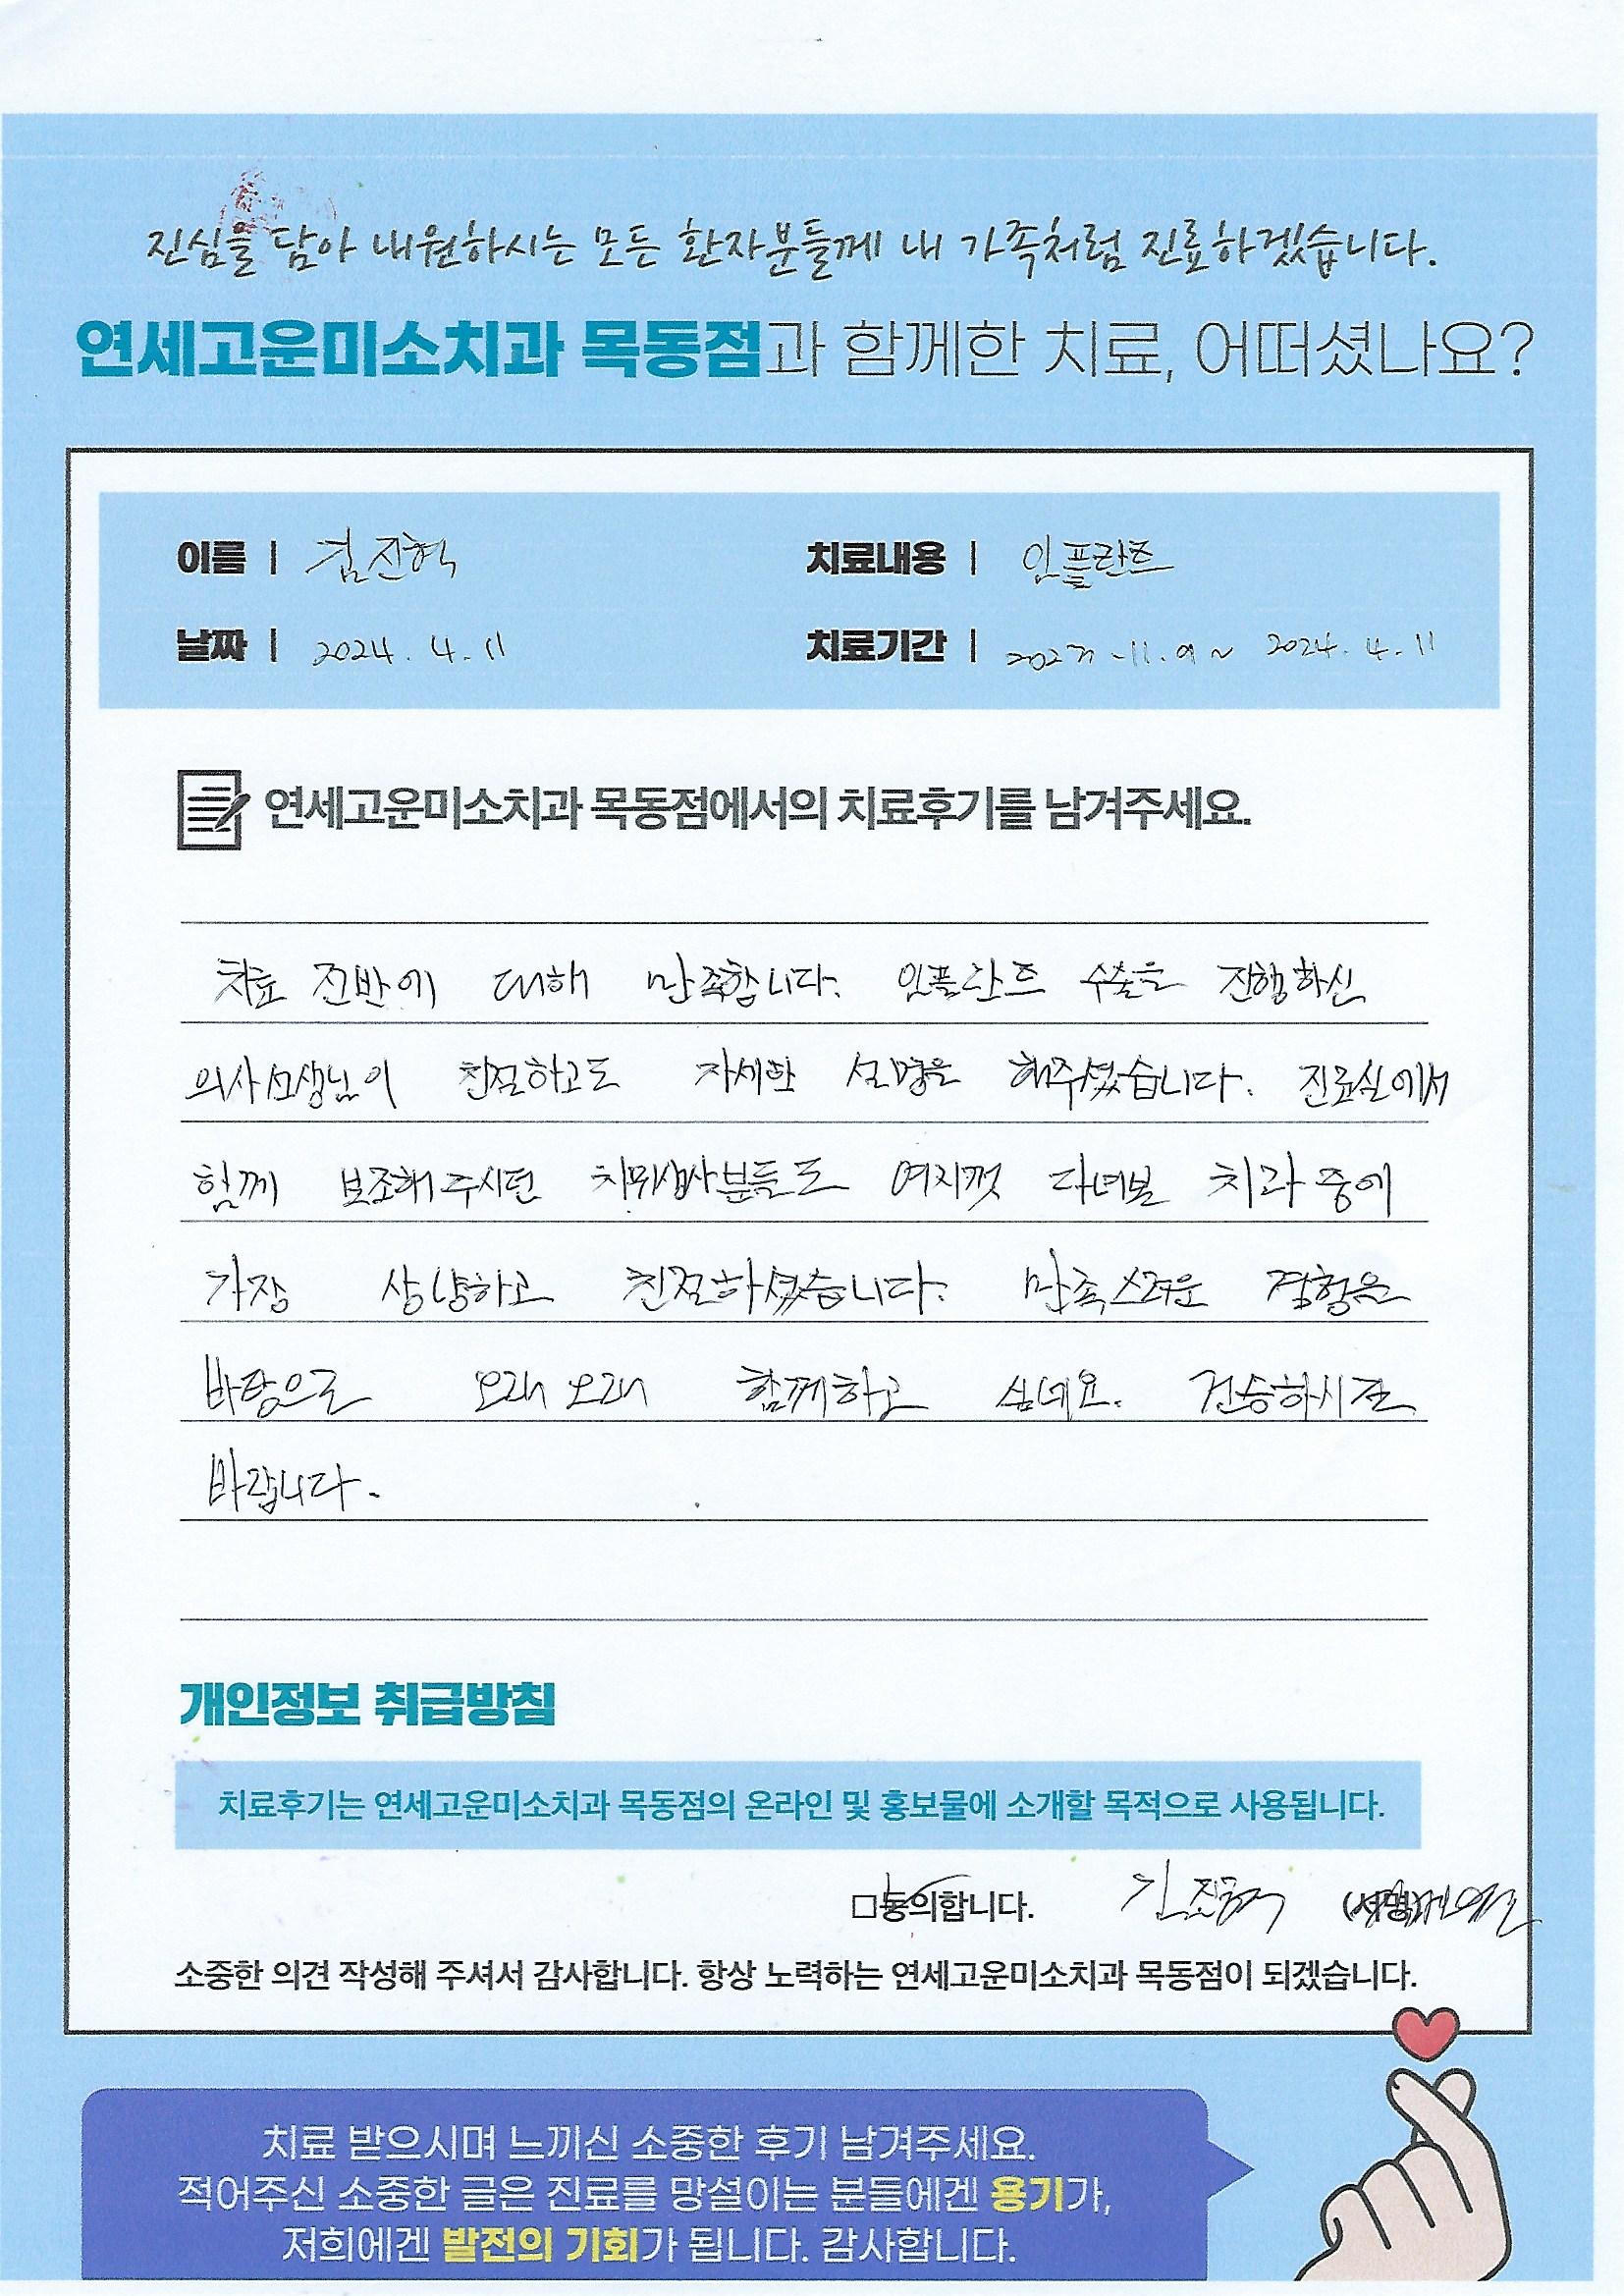 진심을 담아 내원하시는 모든 환자분들께 내 가족처럼 진료하겠습니다.
연세고운미소치과 목동점과 함께한 치료, 어떠셨나요?
이름 | 김진혁 치료내용 | 임플란트
날짜 | 2024. 4. 11 치료기간 | 2023. 11. 9 ~ 2024. 4. 11
연세고운미소치과 목동점에서의 치료후기를 남겨주세요.
치료 전반에 대해 만족합니다. 임플란트 수술을 진행하신
의사선생님이 친절하고도 자세한 설명을 해주셨습니다. 진료실에서
함께 보조해주시던 치위생사분들도 여지껏 다녀본 치과 중에
가장 상냥하고 친절하셨습니다. 만족스러운 경험을
바탕으로 오래오래 함께하고 싶네요. 건승하시길
바랍니다.
개인정보 취급방침
치료후기는 연세고운미소치과 목동점의 온라인 및 홍보물에 소개할 목적으로 사용됩니다.
□동의합니다. 김진혁 (서명)
소중한 의견 작성해 주셔서 감사합니다. 항상 노력하는 연세고운미소치과 목동점이 되겠습니다.
치료 받으시며 느끼신 소중한 후기 남겨주세요.
적어주신 소중한 글은 진료를 망설이는 분들에겐 용기가,
저희에겐 발전의 기회가 됩니다. 감사합니다.